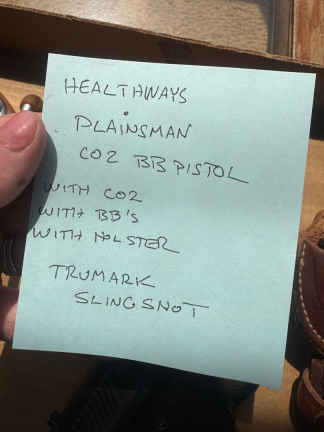 HEALTHWAYS
PLAINSMAN
CO2 BB PISTOL
WITH CO2
WITH BB'S
WITH HOLSTER
TRUMARK
SLINGSHOT